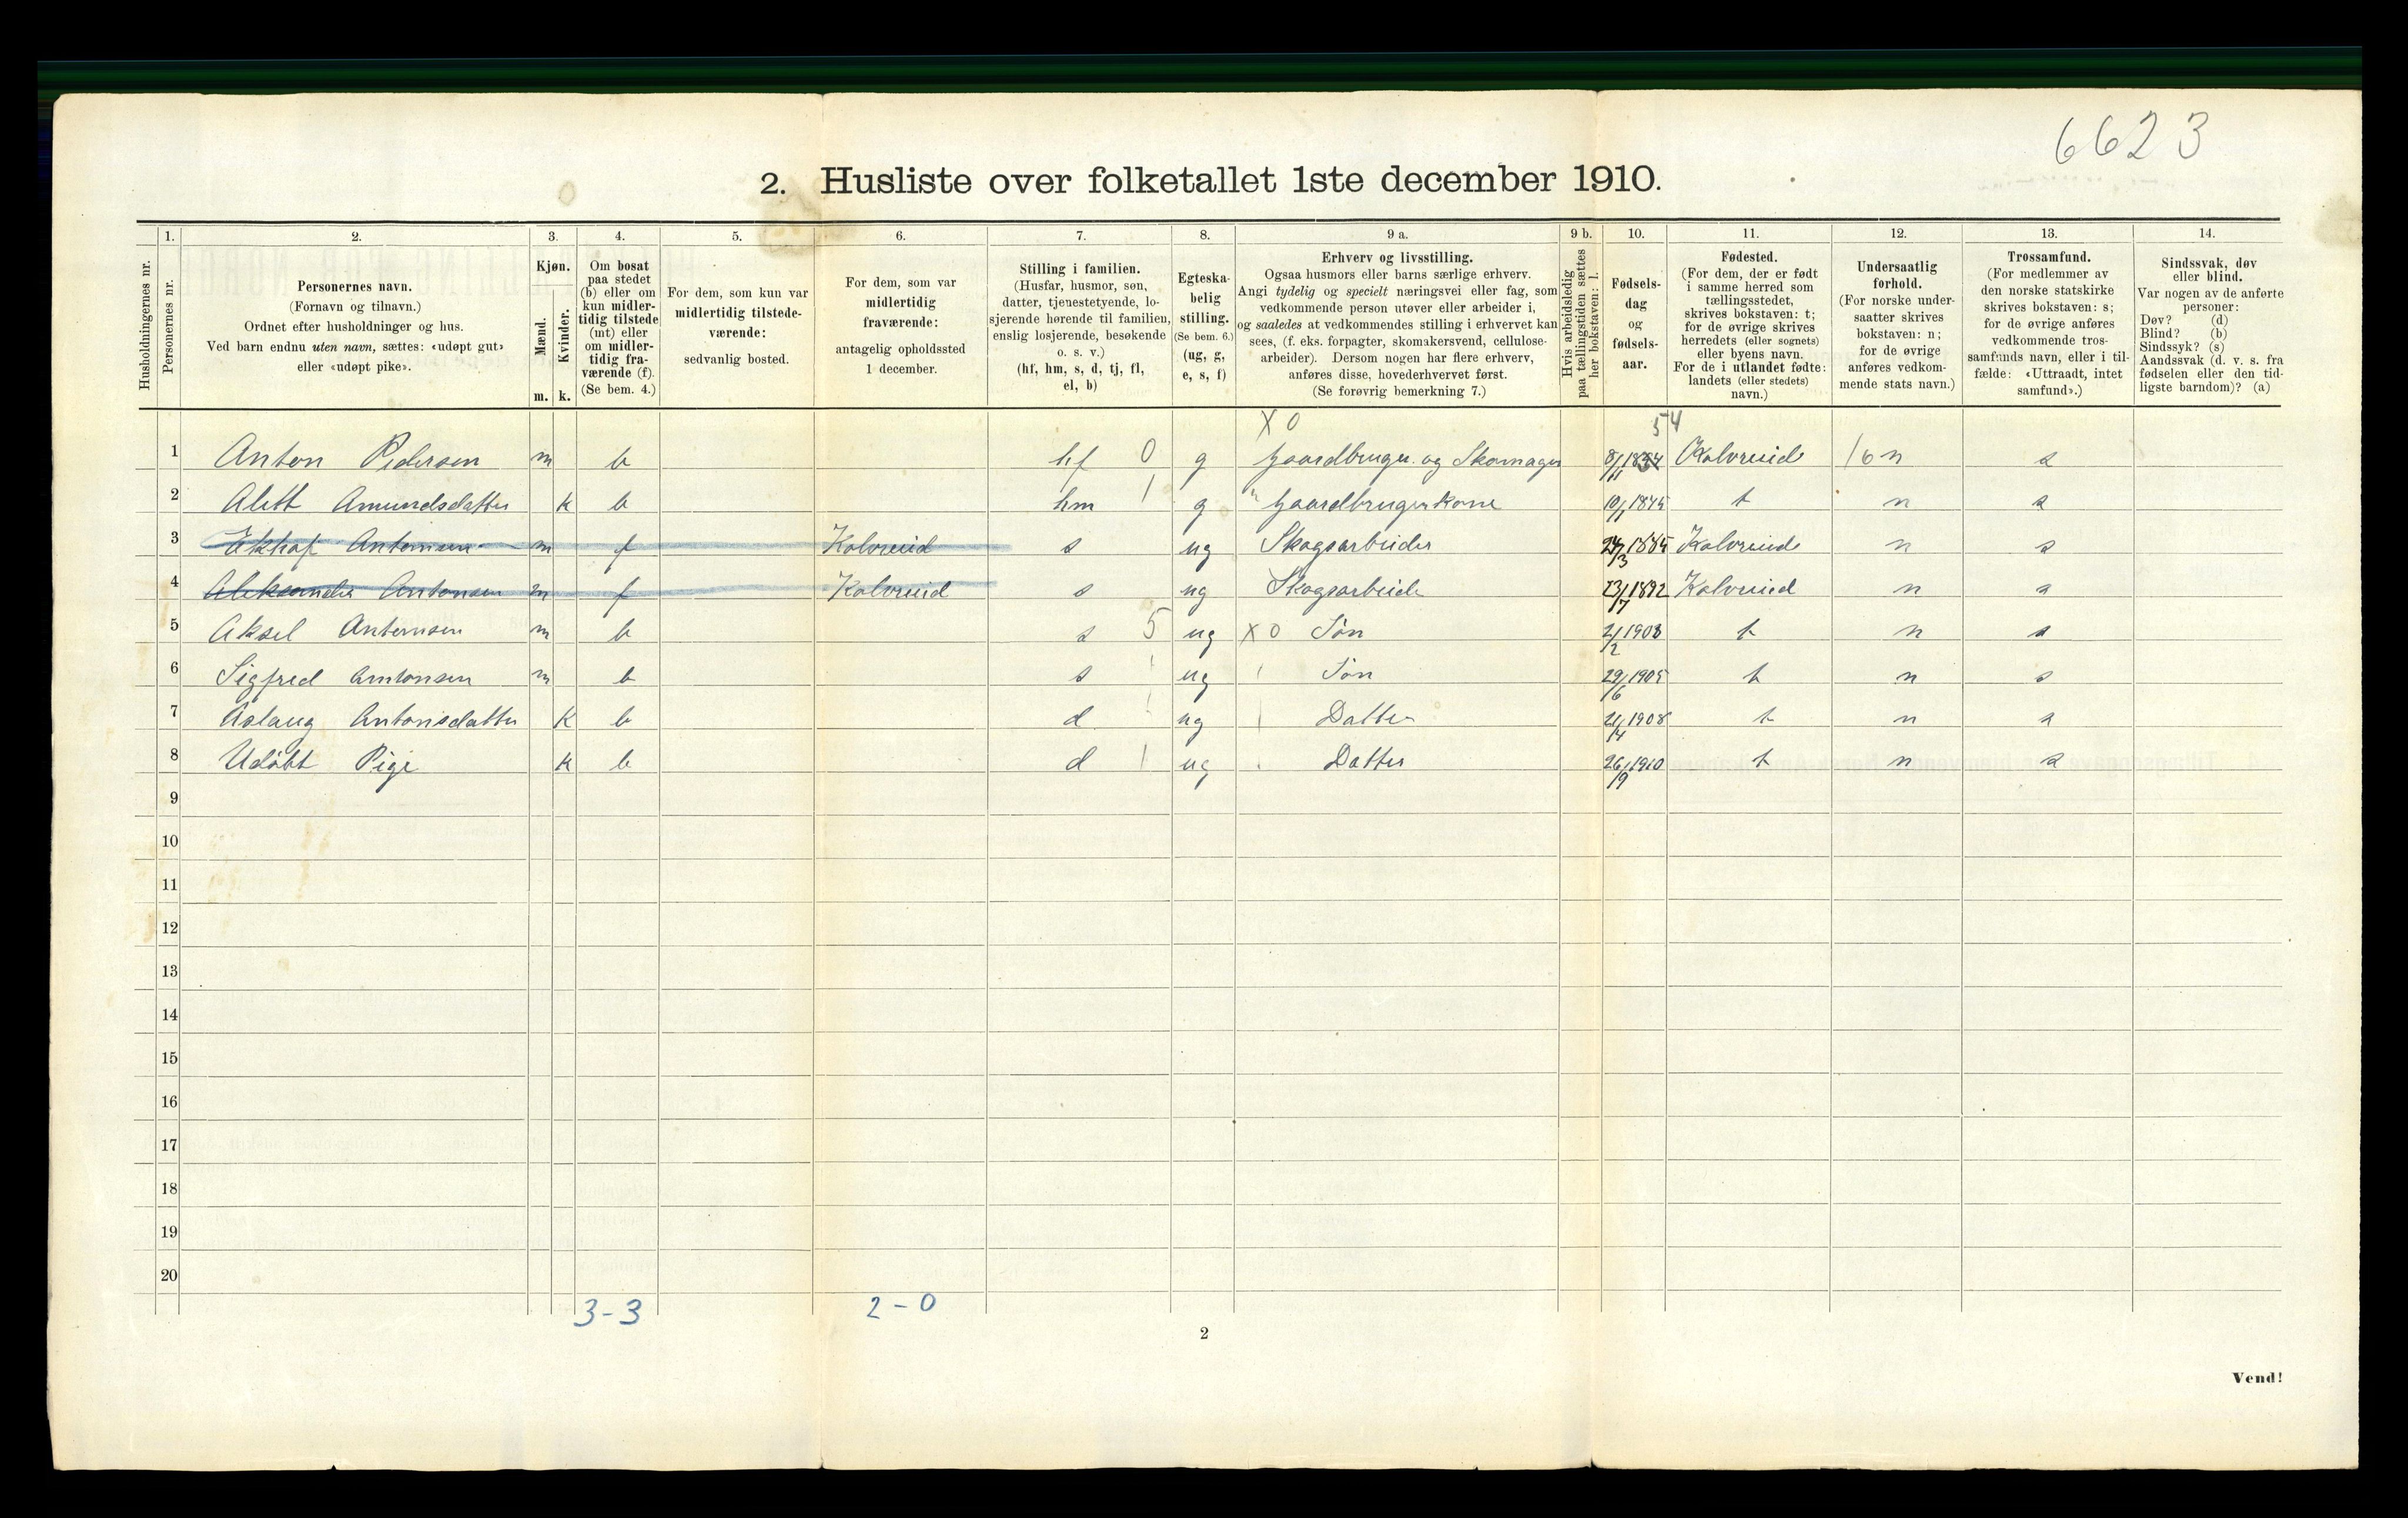 6623
2. Husliste over folketallet 1ste december 1910.
Husholdningernes nr.
1.
Personernes nr.
2.
Personernes navn.
(Fornavn og tilnavn.)
Ordnet efter husholdninger og hus.
Ved barn endnu uten navn, sættes: «udøpt gut»
eller «udøpt pike».
3.
Kjøn.
Mænd.
Kvinder.
m. k.
4.
Om bosat
paa stedet
(b) eller om
kun midler-
tidig tilstede
(mt) eller
om midler-
tidig fra-
værende (f).
(Se bem. 4.)
5.
For dem, som kun var
midlertidig tilstede-
værende:
sedvanlig bosted.
6.
For dem, som var
midlertidig
fraværende:
antagelig opholdssted
1 december.
7.
Stilling i familien.
(Husfar, husmor, søn,
datter, tjenestetyende, lo-
sjerende hørende til familien,
enslig losjerende, besøkende
o. s. v.)
(hf, hm, s, d, tj, fl,
el, b)
8.
Egteska-
belig
stilling.
(Se bem. 6.)
(ug, g,
e, s, f)
9 a.
Erhverv og livsstilling.
Ogsaa husmors eller barns særlige erhverv.
Angi tydelig og specielt næringsvei eller fag, som
vedkommende person utøver eller arbeider i,
og saaledes at vedkommendes stilling i erhvervet kan
sees, (f. eks. forpagter, skomakersvend, cellulose-
arbeider). Dersom nogen har flere erhverv,
anføres disse, hovederhvervet først.
(Se forøvrig bemerkning 7.)
9 b.
Hvis arbeidsledig
paa tællingstiden sættes
her bokstaven: l.
10.
Fødsels-
dag
og
fødsels-
aar.
11.
Fødested.
(For dem, der er født
i samme herred som
tællingsstedet,
skrives bokstaven: t;
for de øvrige skrives
herredets (eller sognets)
eller byens navn.
For de i utlandet fødte:
landets (eller stedets)
navn.)
12.
Undersaatlig
forhold.
(For norske under-
saatter skrives
bokstaven: n;
for de øvrige
anføres vedkom-
mende stats navn.)
13.
Trossamfund.
(For medlemmer av
den norske statskirke
skrives bokstaven: s;
for de øvrige anføres
vedkommende tros-
samfunds navn, eller i til-
fælde: «Uttraadt, intet
samfund».)
14.
Sindssvak, døv
eller blind.
Var nogen av de anførte
personer:
Døv? (d)
Blind? (b)
Sindssyk? (s)
Aandssvak (d. v. s. fra
fødselen eller den tid-
ligste barndom)? (a)
X 0 54
1 Anton Pedersen m b hf 0 g Gaardbruger og Skomager 8/11 1854 Kolvreid 16 n s
2 Alett Amundsdatter k b hm 1 g Gaardbrugerkone t n s
3 Antonsen m f Kolvreid s ug Skogsarbeider 1885 Kolvreid n s
4 Aleksander Antonsen m f Kolvreid s ug Skogsarbeide 23/7 1892 Kolvreid n s
5 Aksel Antonsen m b s 5 ug X 0 Søn t n s
6 Sigfred Antonsen m b s ug Søn 29/6 1905 t n s
7 Aslaug Antonsdatter k b d ug Datter 21/4 1908 t n s
8 Udøbt Pige k b d 1 ug Datter 26/9 1910 t n s
9
10
11
12
13
14
15
16
17
18
19
20
3-3 2-0
2
Vend!